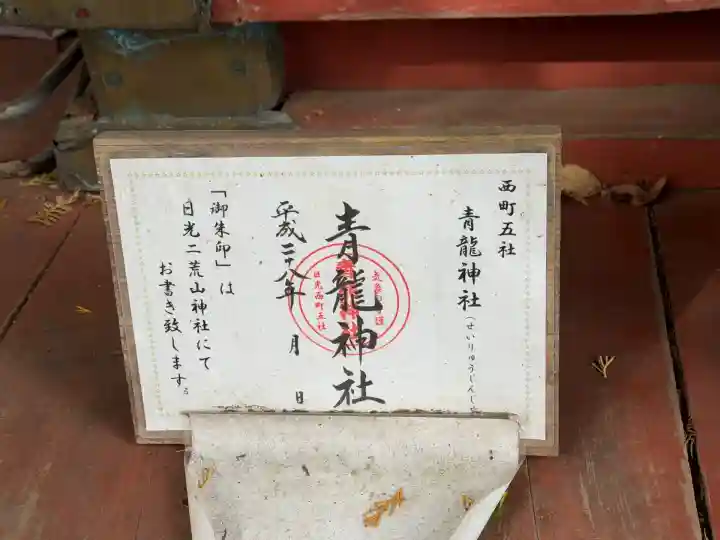 西町五社
青龍神社(せいりゅうじんじゃ
青龍神社
日光西町五社
平成二十八年 月 日
「御朱印」は
日光二荒山神社にて
お書き致します。